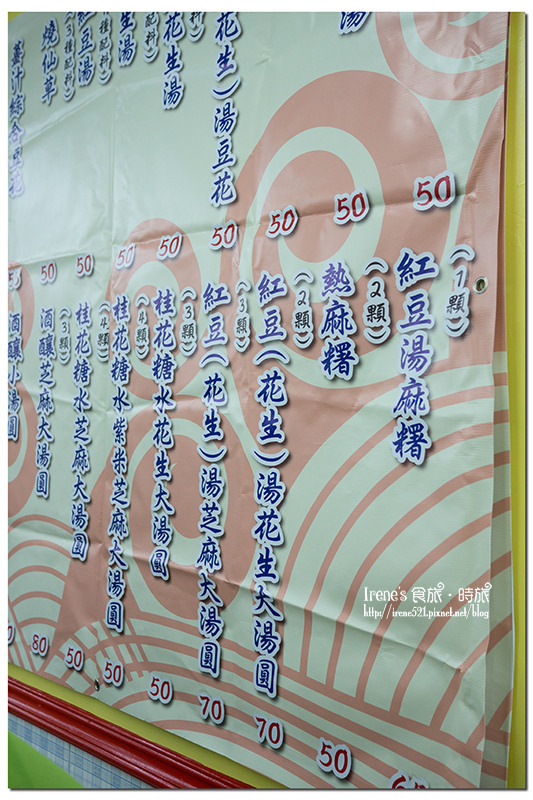 湯
花生)湯豆花
花生湯
種配料)
生湯
種配料)
紅豆湯
(3種配料)
燒仙草
薑汁綜合豆花
50
50
50
50
50
50
50
50
(1顆)
紅豆湯麻糬
(2顆)
熱麻糬
(2顆)
紅豆(花生)湯花生大湯圓
(3顆)
紅豆(花生)湯芝麻大湯圓
(3顆)
桂花糖水花生大湯圓
(4顆)
桂花糖水紫米芝麻大湯圓
(4顆)
桂花糖水芝麻大湯圓
(3顆)
酒釀芝麻大湯圓
酒釀小湯圓
50
70
70
50
50
50
80
Irene's 食旅・時旅
http://irene521.pixnet.net/blog